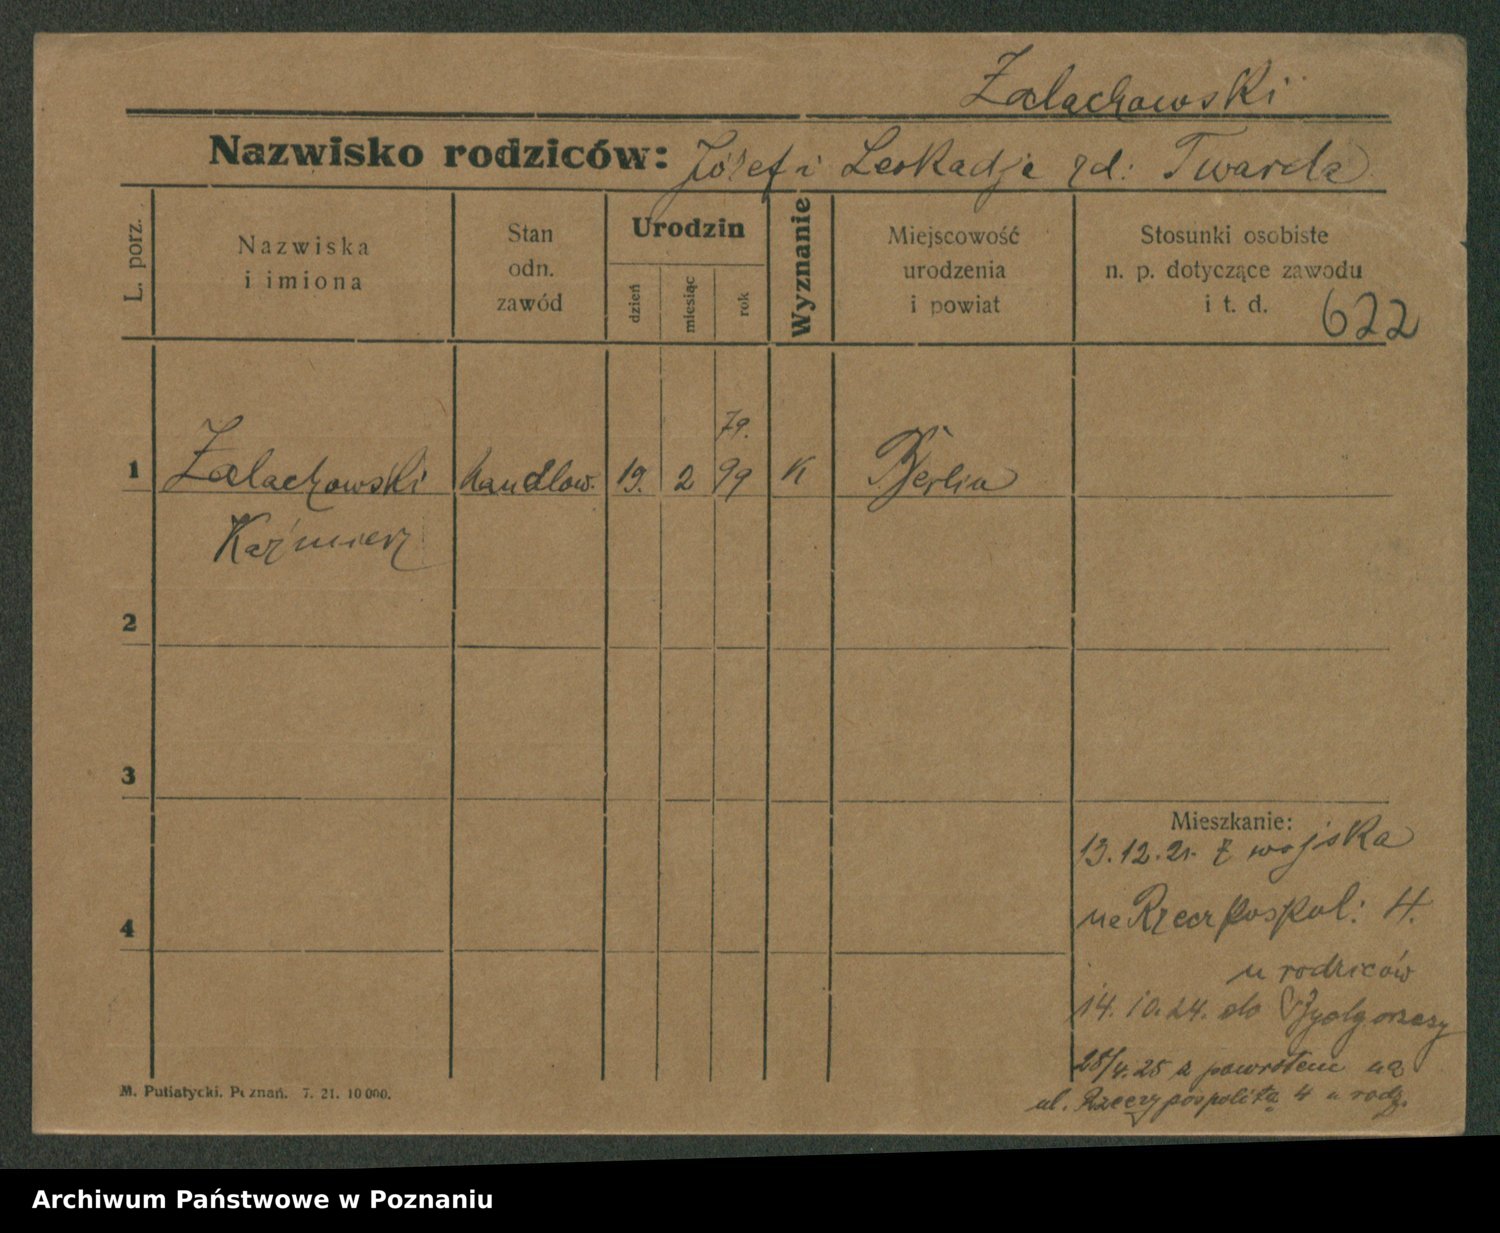 Zalachowski
Nazwisko rodziców: Józef i Leokadja rd: Twarda
L. porz.
Nazwiska
i imiona
Stan
odn.
zawód
Urodzin
dzień
miesiąc
rok
Wyznanie
Miejscowość
urodzenia
i powiat
Stosunki osobiste
n. p. dotyczące zawodu
i t. d.
622
1 Zalachowski handlow. 19. 2 99 K Berlin
Kaźmierz
2
3
Mieszkanie:
13.12.21. z wojska
na Rzeczpospol: 4.
4
u rodziców
14.10.24. do Bydgoszczy
28/4.25 z powrotem na
ul. Rzeczypospolita 4 u rodz.
M. Putiatycki. Poznań. 7. 21. 10 000.
Archiwum Państwowe w Poznaniu